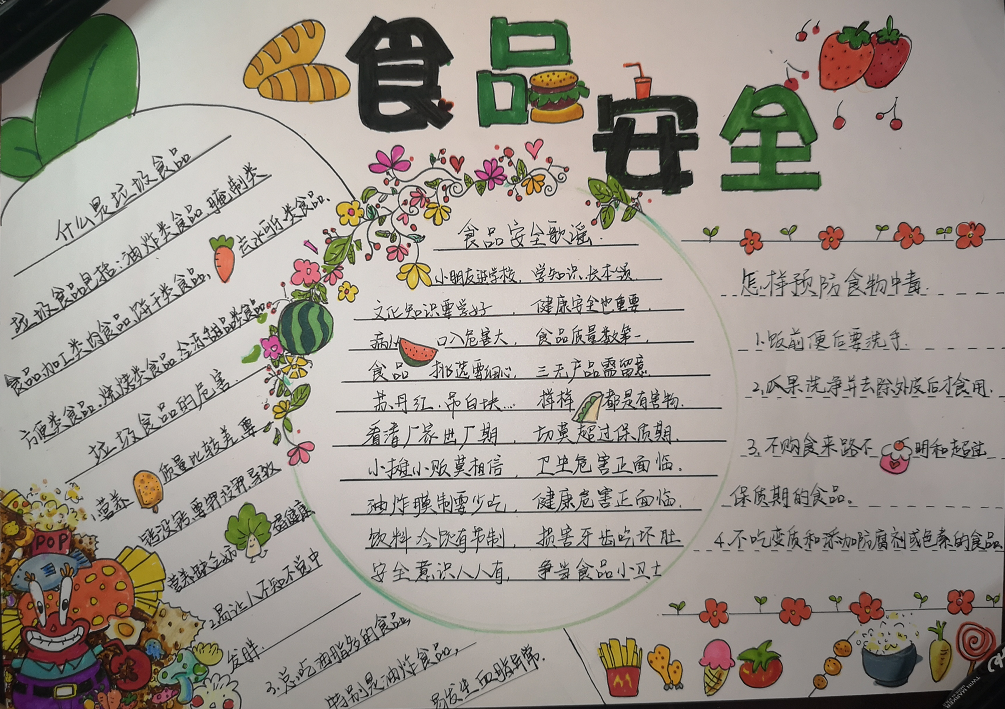 食品安全
什么是垃圾食品
垃圾食品包括:油炸类食品、腌制类
食品、加工类肉食品、饼干类食品、
方便类食品、烧烤类食品、含
垃圾食品的危害
1.营养 质量比较差、要
2.易让人不知不觉中
发胖。
3.总吃油脂多的食品,
特别是油炸食品,
易发生血脂异常。
食品安全歌谣
小朋友进学校, 学知识、长本领
文化知识要学好, 健康安全也重要。
病 口入危害大, 食品质量数第一。
食品 挑选要细心, 三无产品需留意
苏丹红、吊白块... 样样 都是有害物.
看清厂家出厂期, 切莫超过保质期.
小摊小贩莫相信, 卫生危害正面临.
油炸 制要少吃, 健康危害正面临.
饮料冷饮有节制, 损害牙齿吃坏肚
安全意识人人有, 争当食品小卫士
怎样预防食物中毒.
1.饭前便后要洗手.
2.瓜果洗净并去除外皮后才食用.
3.不购食来路不 明和超过
保质期的食品。
4.不吃变质和添加防腐剂或色素的食品
POP